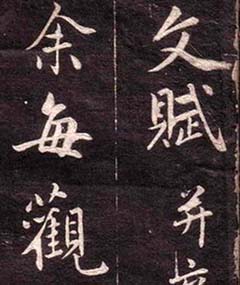 文賦并
余每觀